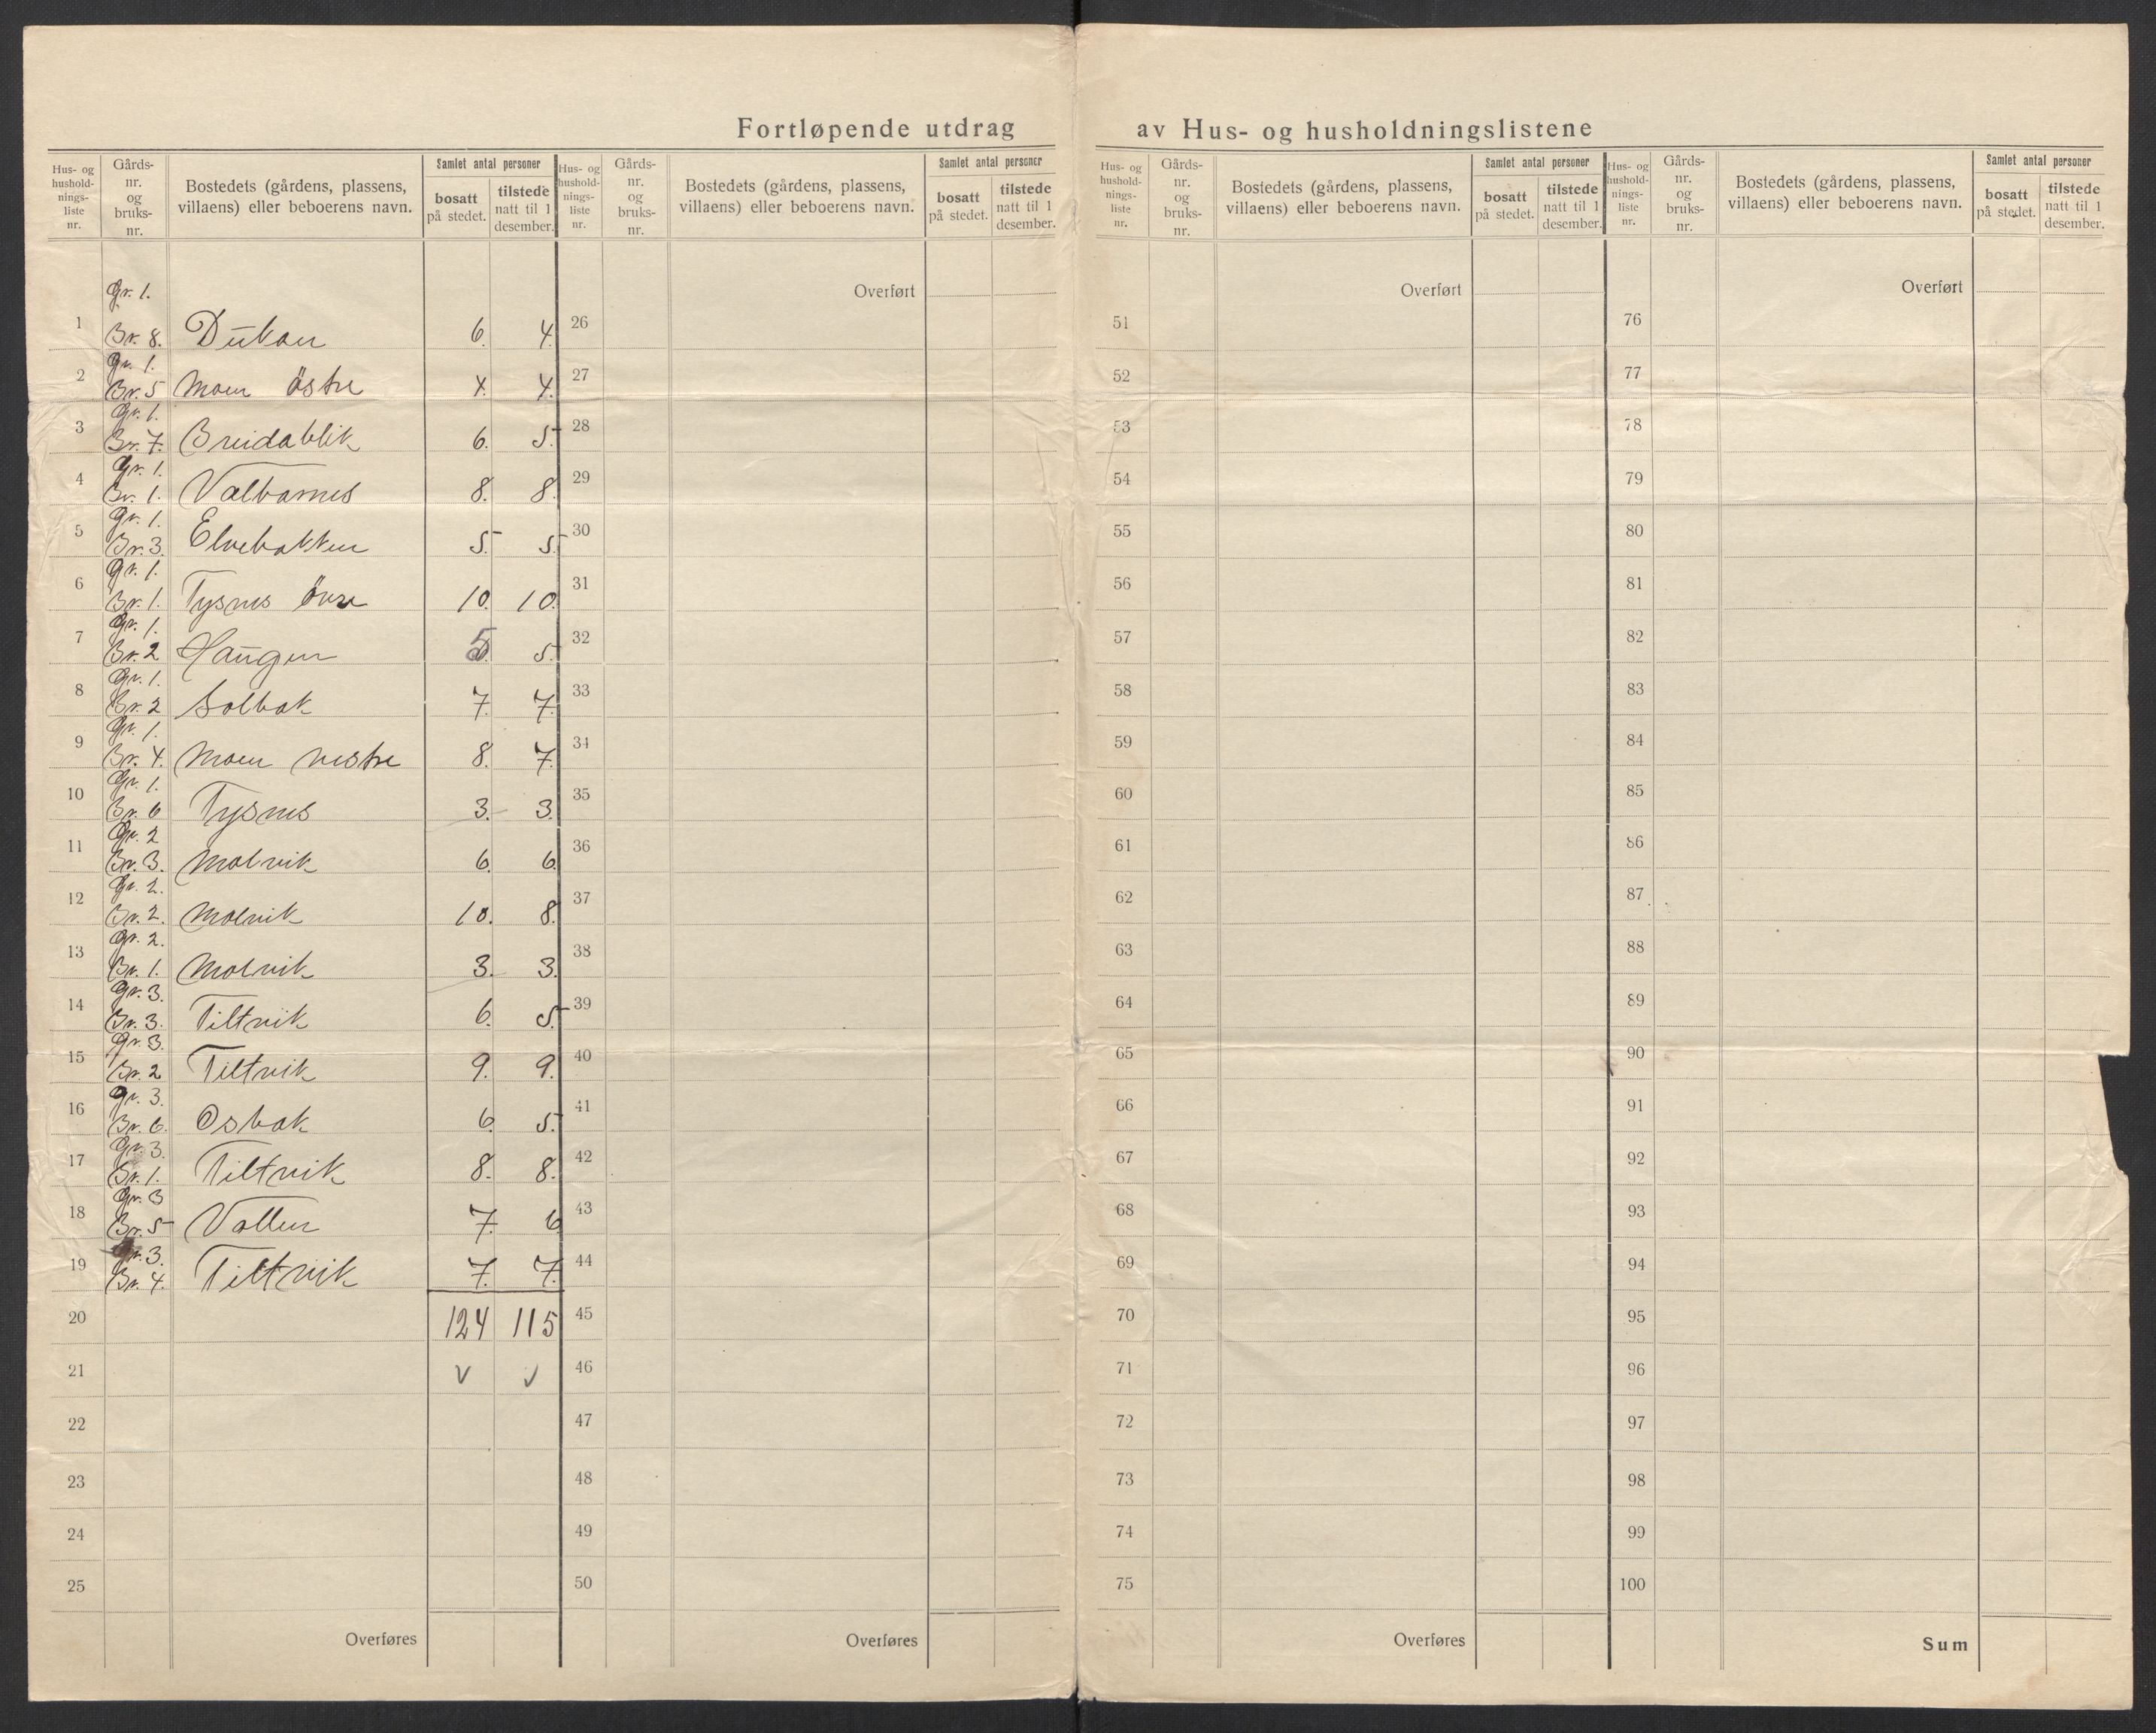 Fortløpende utdrag av Hus- og husholdningslistene
Hus- og hushold-nings-liste nr. Gårds-nr. og bruks-nr. Bostedets (gårdens, plassens, villaens) eller beboerens navn. Samlet antal personer bosatt på stedet. tilstede natt til 1 desember.
Hus- og hushold-nings-liste nr. Gårds-nr. og bruks-nr. Bostedets (gårdens, plassens, villaens) eller beboerens navn. Samlet antal personer bosatt på stedet. tilstede natt til 1 desember.
Hus- og hushold-nings-liste nr. Gårds-nr. og bruks-nr. Bostedets (gårdens, plassens, villaens) eller beboerens navn. Samlet antal personer bosatt på stedet. tilstede natt til 1 desember.
Hus- og hushold-nings-liste nr. Gårds-nr. og bruks-nr. Bostedets (gårdens, plassens, villaens) eller beboerens navn. Samlet antal personer bosatt på stedet. tilstede natt til 1 desember.
Overført Overført Overført
1 Gr. 1. Br. 8. 6. 4.
2 Gr. 1. Br. 5 Moen östre 4. 4.
3 Gr. 1. Br. 7. Breidablik 6. 5.
4 Gr. 1. Br. 1. 8. 8.
5 Gr. 1. Br. 3. Elvebakken 5. 5.
6 Gr. 1. Br. 1. Tysnes övre 10. 10.
7 Gr. 1. Br. 2 Haugen 5 5.
8 Gr. 1. Br. 2 Solbak 7. 7.
9 Gr. 1. Br. 4. Moen vestre 8. 7.
10 Gr. 1. Br. 6 Tysnes 3. 3.
11 Gr. 2 Br. 3. Molvik 6. 6.
12 Gr. 2. Br. 2. Molvik 10. 8.
13 Gr. 2. Br. 1. Molvik 3. 3.
14 Gr. 3. Br. 3. Tiltvik 6. 5.
15 Gr. 3. Br. 2 Tiltvik 9. 9.
16 Gr. 3. Br. 6. Osbak 6. 5.
17 Gr. 3. Br. 1. Tiltvik 8. 8.
18 Gr. 3 Br. 5 Vollen 7. 6
19 Gr. 3. Br. 4. Tiltvik 7. 7.
20 124 115
21 v v
22
23
24
25
Overføres
26
27
28
29
30
31
32
33
34
35
36
37
38
39
40
41
42
43
44
45
46
47
48
49
50
Overføres
51
52
53
54
55
56
57
58
59
60
61
62
63
64
65
66
67
68
69
70
71
72
73
74
75
Overføres
76
77
78
79
80
81
82
83
84
85
86
87
88
89
90
91
92
93
94
95
96
97
98
99
100
Sum